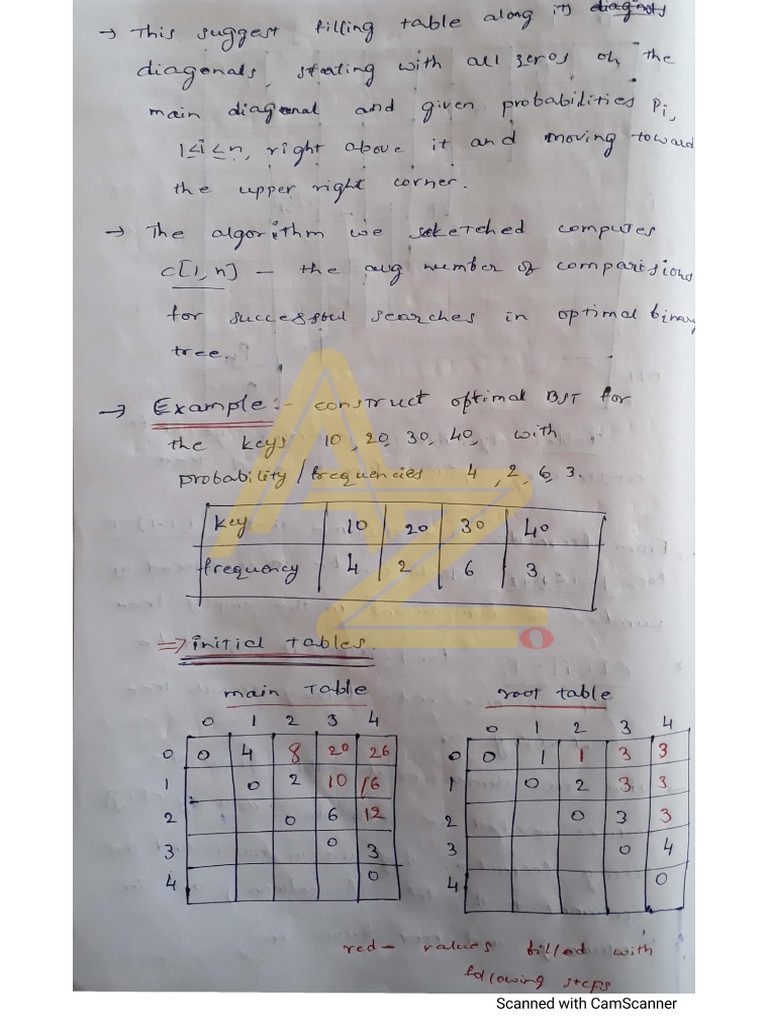 → This suggest filling table along its
diagonals, stating with all zeros on the
main diagonal and given probabilities Pi,
1≤i≤n, right above it and moving toward
the upper right corner.
→ The algorithm we sketched computes
C[1,n] - the avg number of comparisions
for successful searches in optimal binary
tree.
→ Example:- construct optimal BST for
the keys 10, 20, 30, 40, with
probability/frequencies 4, 2, 6, 3.
key 10 20 30 40
frequency 4 2 6 3
AZO
⇒ initial tables.
main Table root table
0 1 2 3 4 0 1 2 3 4
0 0 4 8 20 26 0 0 1 1 3 3
1 0 2 10 16 1 0 2 3 3
2 0 6 12 2 0 3 3
3 0 3 3 0 4
4 0 4 0
red- values filled with
following steps
Scanned with CamScanner